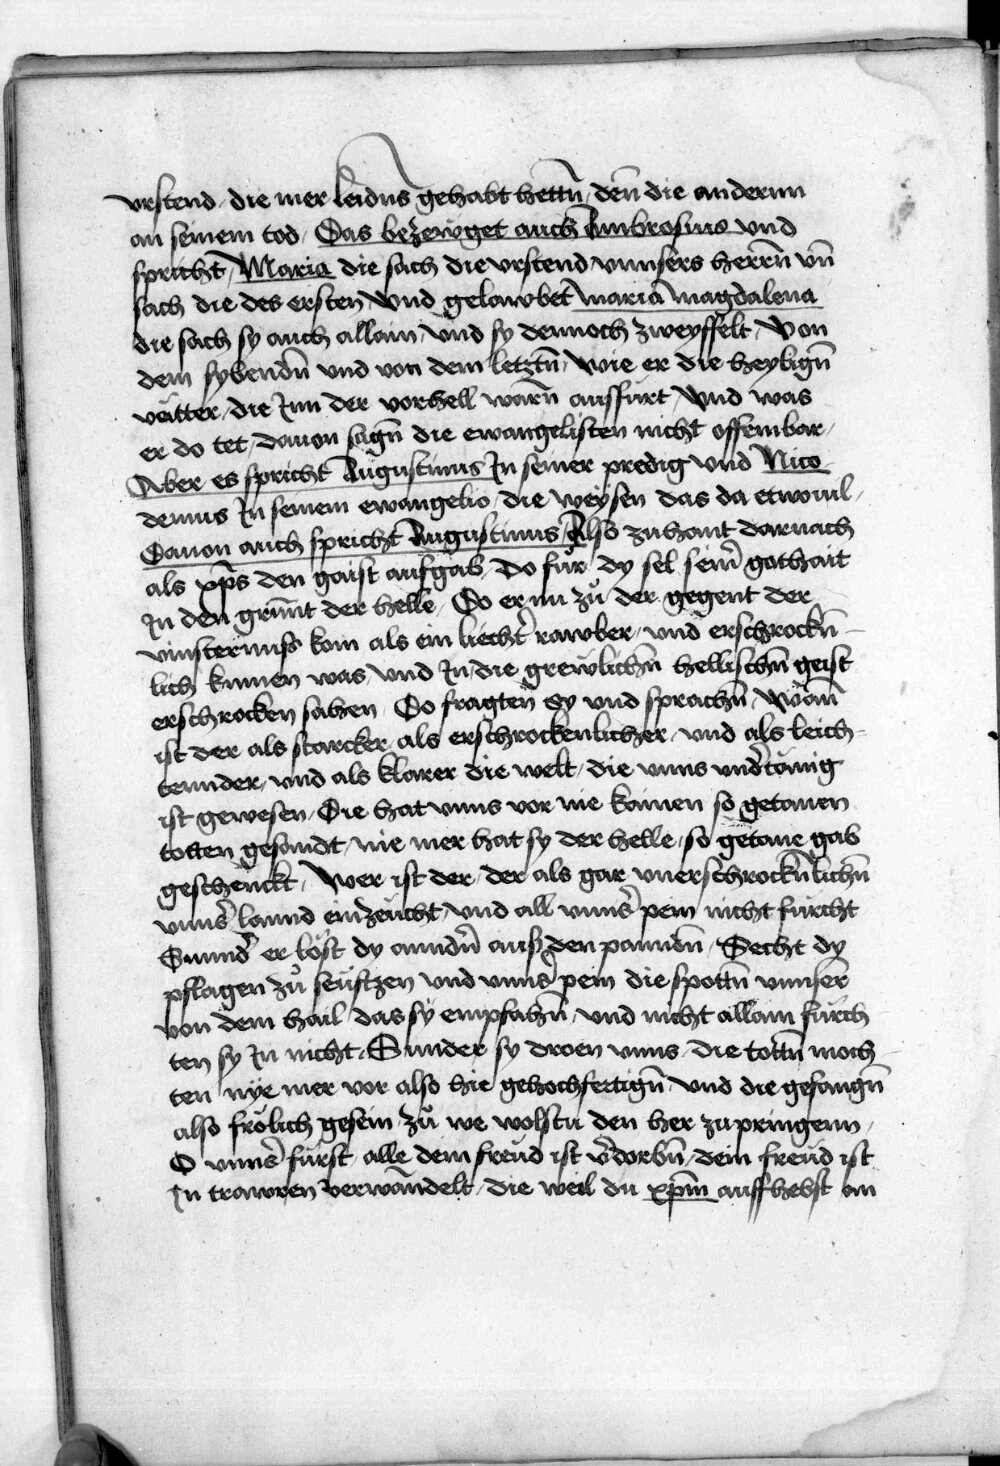 vrstend / die mer leidns gehabt hettn̄ / den̄ die andernn
an seinem tod / Das bezewget auch Ambrosius vnd
spricht / Maria die sach die vrstend vnnsers herrn̄ vn̄
sach die des ersten vnd gelawbet maria magdalena
die sach sy auch allain / vnd sy dennoch zweyffelt / Von
dem sybendn̄ vnd von dem letztn̄ / wie er die heylign̄
vätter / die Inn der vorhell warn̄ ausfürt / vnd was
er do tet / dauon sagn̄ die ewangelisten nicht offembar /
Aber es spricht Augustinus In seiner predig vnd Nico
demus In seinem ewangelio / die weysen das da etwouil /
Dauon auch spricht Augustinus / Also zuhant darnach
als xp̄s den gaist aufgab / Do fůr dy sel sein̄ gothait
In den grunt der helle / Do er nu zů der gegent der
vinsternuss kom als ein liecht̄ rawber / vnd erschrockn̄
lich kumen was / vnd In die grewlichn̄ hellischn̄ geist
erschrocken sahen / Do fragten sy vnd sprachn̄ / Wan̄
ist der als starcker / als erschrockenlicher / vnd als leich
tennder / vnd als klarer die welt / die vnns vnd̄tänig
ist gewesen / Die hat vnns vor nie kainen so getanen
totten gesandt / nie mer hat sy der helle / so getane gab
geschenckt / Wer ist der / der als gar vnerschrockn̄lichn̄
vnns̄ lannd einzeucht / vnd all vnns̄ pein nicht fürcht
Sunnd̄ er löst dy anndn̄ auss den panndn̄ / Secht dy
pflagen zů seüftzen vnd vnns̄ pein die spottn̄ vnnser
von dem hail das sy empfahn̄ / vnd nicht allain fürch
ten sy In nicht / Sunder sy droen vnns / die tottn̄ moch
ten nye mer vor also hie gehochfertign̄ vnd die gefangn̄
also frölich gesein / zů we wolstu den her zupringenn /
O vnns̄ fürst / alle dein freud ist v̄dorbn̄ / dein freüd ist
In trawren verwandelt / die weil du xp̄m auffhebst an